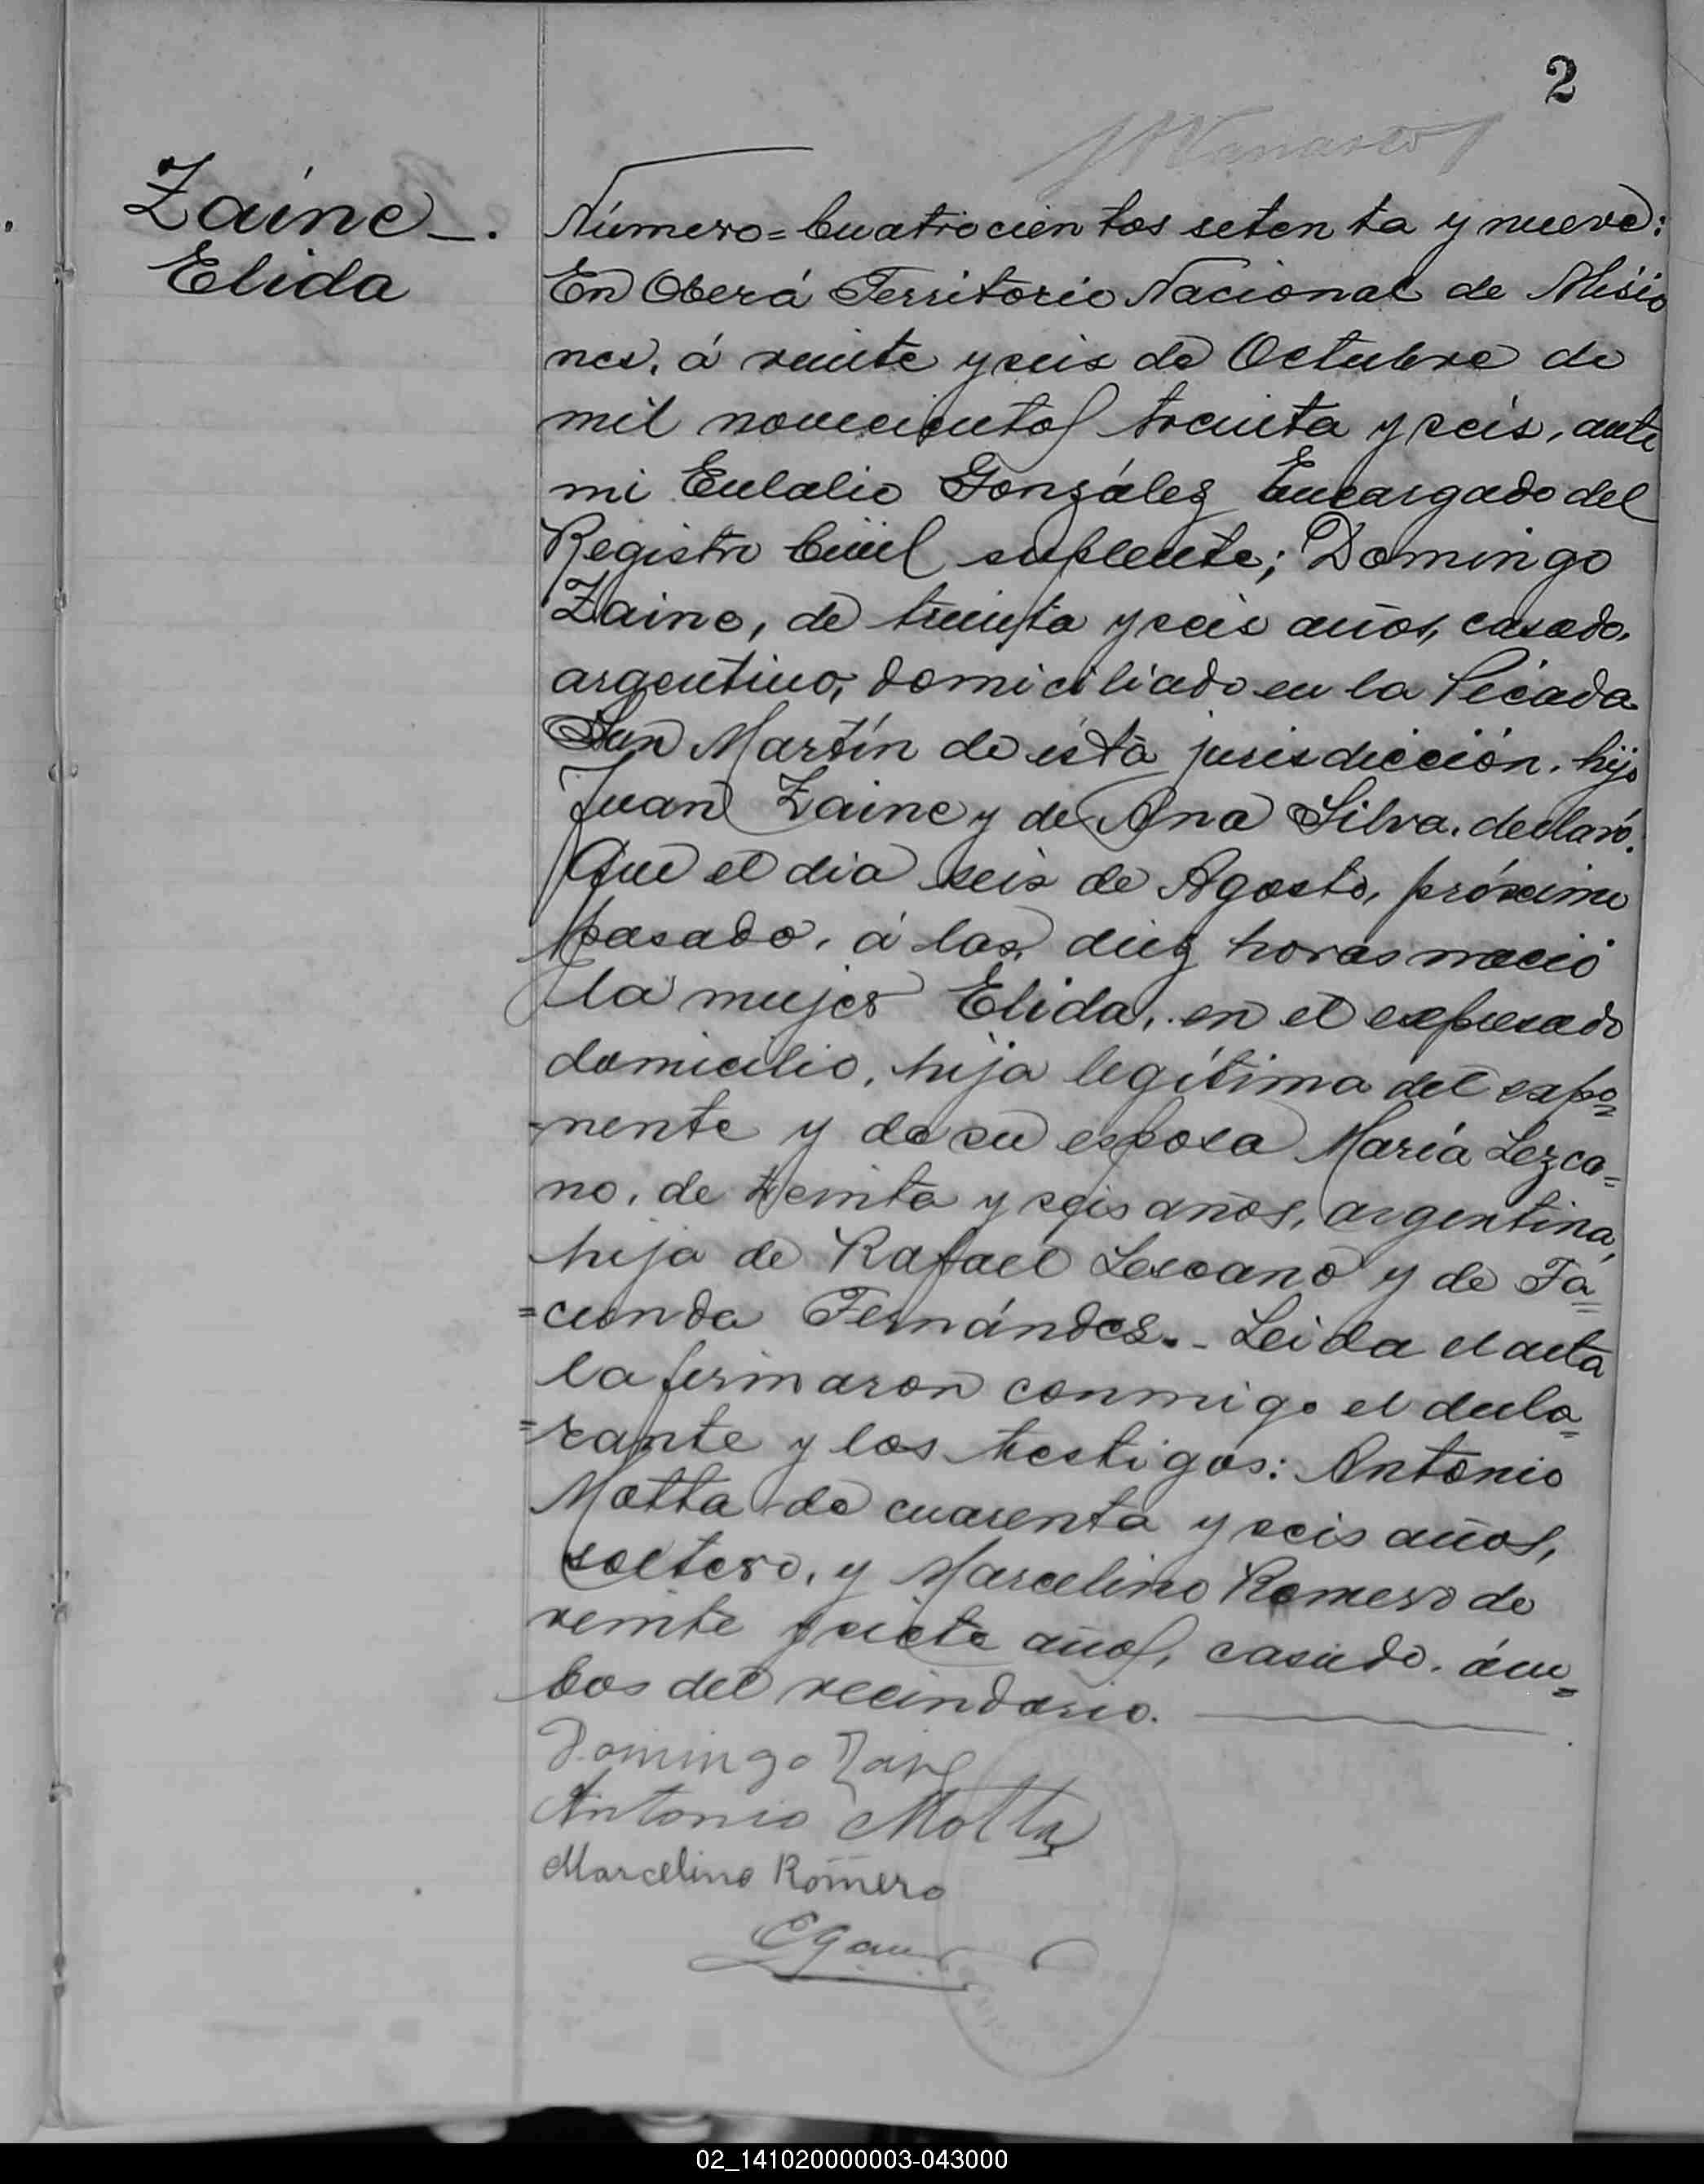 2
Zaine_.
Elida
Número=Cuatrocientos setenta y nueve:
En Oberá Territorio Nacional de Misio
nes, á veinte y seis de Octubre de
mil novecientos treinta y seis, ante
mi Eulalio González Encargado del
Registro Civil suplente; Domingo
Zaine, de treinta y seis años, casado,
argentino, domiciliado en la Picada
San Martín de ésta jurisdicción, hijo
Juan Zaine y de Ana Silva, declaró:
Que el dia seis de Agosto, próximo
pasado, á las diez horas nació
la mujer Elida, en el expresado
domicilio, hija legítima del expo=
=nente y de su esposa María Lezca=
no, de treinta y seis años, argentina,
hija de Rafael Lescano y de Fa=
=cunda Fernández.- Leida el acta
la firmaron conmigo el decla=
=rante y los testigos: Antonio
Motta de cuarenta y seis años,
soltero, y Marcelino Romero de
veinte y siete años, casado, ám=
bos del vecindario.
Domingo Zaine
Antonio Motta
Marcelino Romero
02_141020000003-043000